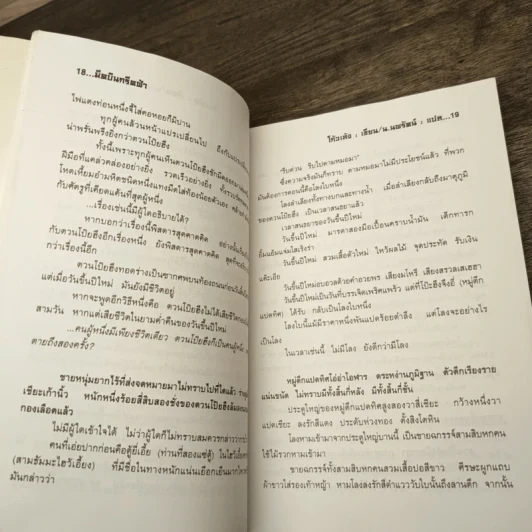 18...มีดบินกรีดฟ้า
ไฟแดงท่อนหนึ่งจี้ใส่คอหอยก็มิปาน
ทุกผู้คนล้วนหน้าแปรเปลี่ยนไป
น่าพรั่นพรึงยิ่งกว่าตวนโป้ยฮึง
ทั้งนี้เพราะทุกผู้คนเห็นตวนโป้ยฮึงชัก
ฝีมือที่แคล่วคล่องอย่างยิ่ง รวดเร็วอย่างยิ่ง
โหดเหี้ยมอำมหิตชนิดหนึ่งแทงมีดใส่ท้องน้อยตัวเอง
กับศัตรูที่เคียดแค้นที่สุดผู้หนึ่ง
...เรื่องเช่นนี้มีผู้ใดอธิบายได้?
หากบอกว่าเรื่องนี้พิสดารสุดคาดคิด
กับตวนโป้ยฮึงอีกเรื่องหนึ่ง ยังพิสดารสุดคาดคิด
กว่าเรื่องนี้อีก
ตวนโป้ยฮึงทอดร่างเป็นซากศพบนท้องถนนก่อนวัน
แต่เมื่อวันขึ้นปีใหม่ มันยังมีชีวิตอยู่
หากจะพูดอีกวิธีหนึ่งคือ ตวนโป้ยฮึงไม่ได้เสียชีวิต
สามวัน หากแต่เสียชีวิตในยามค่ำคืนของวันขึ้นปีใหม่
...คนผู้หนึ่งมีเพียงชีวิตเดียว ตวนโป้ยฮึงก็เป็นคนผู้หนึ่ง
ตายถึงสองครั้ง?
ชายหนุ่มยากไร้ที่ส่งจดหมายมาไม่ทราบไปที่ใดแล้ว
เซียะเก้านิ้ว หนักหนึ่งร้อยสี่สิบสองชั่งของตวนโป้ยฮึงล้ม
กองเลือดแล้ว
ไม่มีผู้ใดเข้าใจได้ ไม่ว่าผู้ใดก็ไม่ทราบสมควรกล่าว
คนที่เอ่ยปากก่อนคือตู้ยี่เอี้ย (ท่านที่สองแซ่ตู้)
(สามธัมมะไฮว้เอี้ยง) ที่มีชื่อในทางหนักแน่นเยือกเย็น
มันกล่าวว่า
โก้วเล้ง : เขียน/น.นพรัตน์ : แปล...19
"รีบด่วน รีบไปตามหมอมา"
ซึ่งความจริงมันก็ทราบ ตามหมอมาไม่มีประโยชน์แล้ว ที่พวก
มันต้องการตอนนี้คือโลงใบหนึ่ง
โลงลำเลียงทั้งทางบกและทางน้ำ เมื่อลำเลียงกลับถึงมาตุภูมิ
ของตวนโป้ยฮึง เป็นเวลาสนธยาแล้ว
เวลาสนธยาของวันขึ้นปีใหม่
วันขึ้นปีใหม่ มารดาสองมือเปื้อนคราบน้ำมัน เด็กทารก
ยิ้มแย้มแจ่มใสเริงร่า
วันขึ้นปีใหม่ สวมเสื้อตัวใหม่ ไหว้ผลไม้ จุดประทัด รับเงิน
แต๊ะเอีย
วันขึ้นปีใหม่อบอวลด้วยคำอวยพร เสียงมโหรี เสียงสรวลเสเฮฮา
วันขึ้นปีใหม่เป็นวันที่บรรเจิดเพริศแพร้ว แต่ที่โป้ยฮึงจึงยี้ (หมู่ตึก
แปดทิศ) ได้รับ กลับเป็นโลงใบหนึ่ง
โลงใบนี้แม้มีราคาหนึ่งพันแปดร้อยตำลึง แต่โลงจะอย่างไร
เป็นโลง
ในเวลาเช่นนี้ ไม่มีโลง ยังดีกว่ามีโลง
หมู่ตึกแปดทิศโอ่อ่าโอฬาร ตระหง่านภูมิฐาน ตัวตึกเรียงราย
แน่นขนัด ไม่ทราบมีทั้งสิ้นกี่หลัง มีทั้งสิ้นกี่ชั้น
ประตูใหญ่ของหมู่ตึกแปดทิศสูงสองวาสี่เซียะ กว้างหนึ่งวา
แปดเซียะ ลงรักสีแดง ประดับห่วงทอง ตั้งสิงโตหิน
โลงหามเข้ามาจากประตูใหญ่บานนี้ เป็นชายฉกรรจ์สามสิบหกคน
ใช้ไม้รวกหามเข้ามา
ชายฉกรรจ์ทั้งสามสิบหกคนสวมเสื้อปอสีขาว ศีรษะผูกแถบ
ผ้าขาวใส่รองเท้าหญ้า หามโลงลงรักสีดำแวววับใบนั้นถึงลานตึก จากนั้น